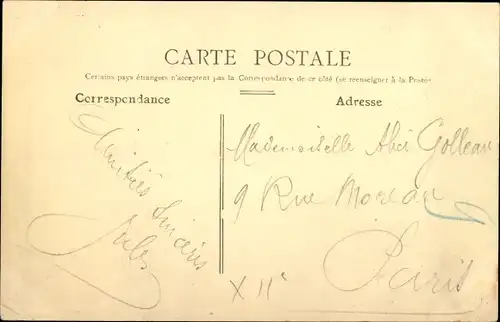 CARTE POSTALE
Certains pays étrangers n'acceptent pas la Correspondance de ce côté (se renseigner à la Poste)
Correspondance
Adresse
Amitiés Sincères
Jules
Mademoiselle Golleau
9 Rue Moreau
Paris
X IIe